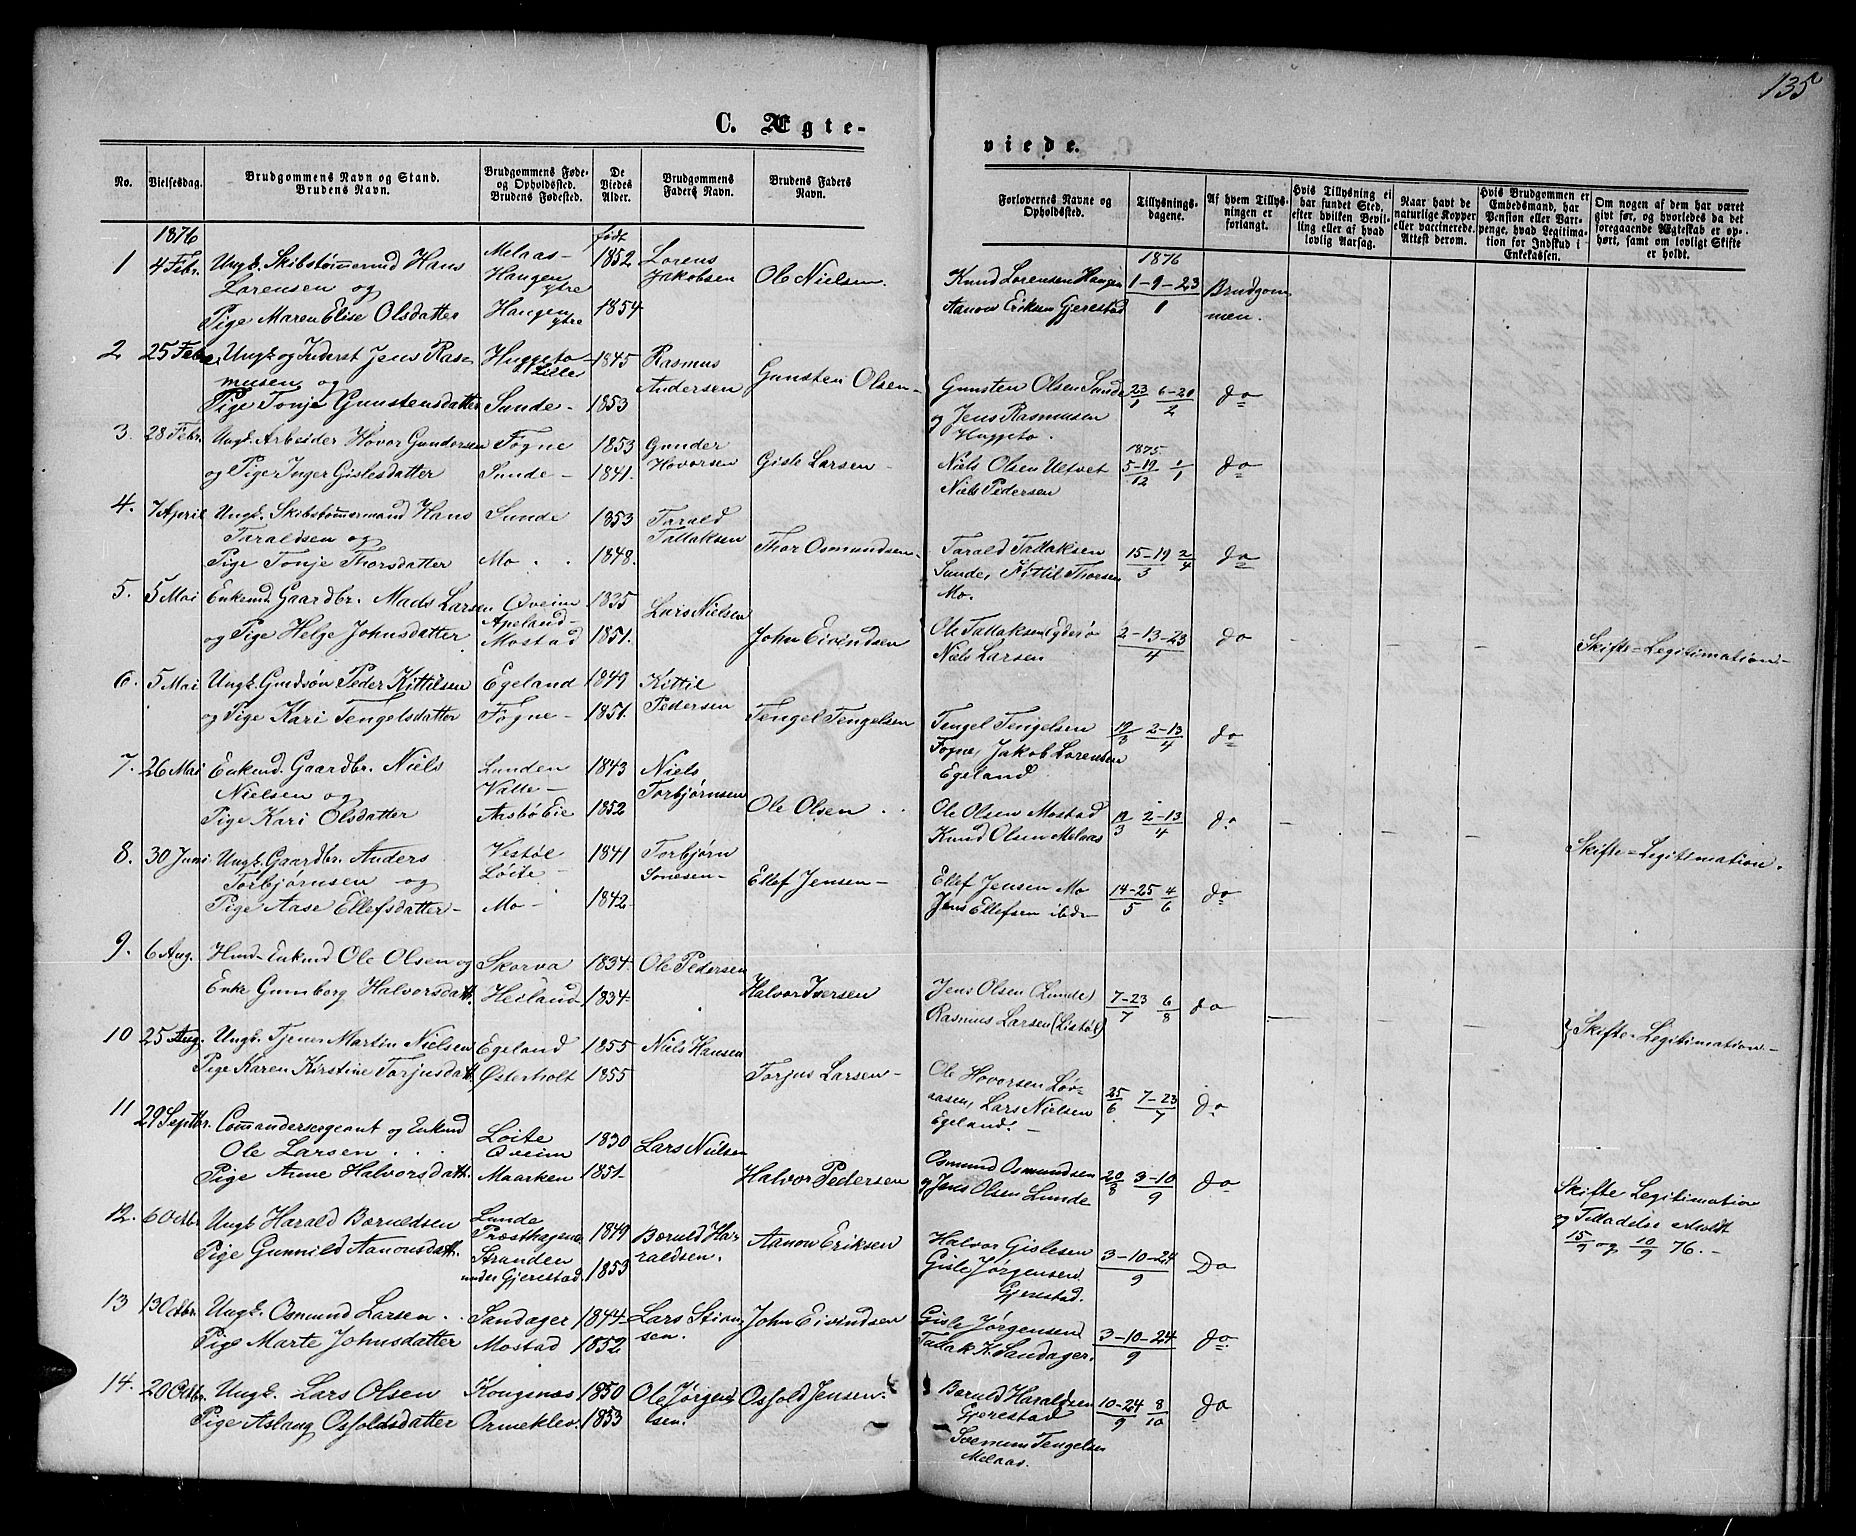 135
C. Ægte-
viede.
No.
Vielsesdag.
Brudgommens Navn og Stand.
Brudens Navn.
Brudgommens Føde-
og Opholdssted.
Brudens Fødested.
De
Viedes
Alder.
Brudgommens
Faders Navn.
Brudens Faders
Navn.
Forlovernes Navne og
Opholdssted.
Tillysnings-
dagene.
Af hvem Tillys-
ningen er
forlangt.
Hvis Tillysning ei
har fundet Sted,
efter hvilken Bevil-
ling eller af hvad
lovlig Aarsag.
Naar havt de
naturlige Kopper
eller vaccinerede.
Attest derom.
Hvis Brudgommen er
Embedsmand, har
Pension eller Var-
penge, hvad Legitima-
tion for Indskud i
Enkekassen.
Om nogen af dem har været
gift før, og hvorledes da det
foregaaende Ægteskab er op-
hørt, samt om lovligt Skifte
er holdt.
1876
født
1876
1 4 Febr. Ungk. Skibstømmermd Hans Melaas- 1852 Lorens
Lorensen og Haugen ytre Jakobsen Ole Nielsen. Knud Lorensen Haugen 1-9-23 Brudgom
Pige Maren Elise Olsdatter Haugen ytre 1854 Aanon Eriksen Gjerestad 1 men.
2 25 Febr. Ungk. og Inderst Jens Ras- Huggeto Lille 1845 Rasmus
musen og Andersen Gunsten Olsen- Gunsten Olsen Sunde 23/1 6-20/2 do
Pige Tonje Gunstensdatter Sunde- 1853 og Jens Rasmusen
Huggeto.
3. 28 Febr. Ungk. Arbeider Hovor Gundersen Fogne 1853 Gunder 1875
og Pige Inger Gislesdatter Sunde- 1841. Hovorsen Gisle Larsen- Niels Olsen Ulvet 5-19/12 1/1 do
Niels Pedersen
4. 7 April Ungk. Skibstømmermand Hans Sunde 1853 Tarald
Taraldsen og Tallaksen Thor Osmundsen- Tarald Tallaksen 15-19/3 2/4 do
Pige Tonje Thorsdatter Mo . . 1848. Sunde, Kittil Thorsen
Mo.
5. 5 Mai Enkemd. Gaardbr. Mads Larsen Øveim 1835 Lars Nielsen
Apeland-
og Pige Helge Johnsdatter Mostad 1851. John Eivindsen Ole Tallaksen 2-13-23/4 do - - - Skifte-Legitimation-
Niels Larsen
6. 5 Mai Ungk. Gmdsøn Peder Kittilsen Egeland 1849 Kittil
og Pige Kari Tengelsdatter Fogne- 1851. Pedersen Tengel Tengelsen Tengel Tengelsen 19/3 2-13/4 do
Fogne, Jakob Lorensen
Egeland
7. 26 Mai Enkmd. Gaardbr. Niels Lunden 1843 Niels
Nielsen og Valle- Torbjørnsen
Pige Kari Olsdatter Aasbø Eie 1852 Ole Olsen . . Ole Olsen Mostad 19/3 2-13/4 do - - -
Knud Olsen Melaas Skifte-Legitimation.
8. 30 Juni Ungk. Gaardbr. Anders Vestøl 1841 Torbjørn
Torbjørnsen og Løite- Sonesen- Ellef Jensen- Ellef Jensen Mo 14-25/5 4/6 do
Pige Aase Ellefsdatter- Mo- 1842- Jens Ellefsen ibd-
9. 6 Aug. Hmd-Enkmd Ole Olsen og Skorva 1834- Ole Pedersen
Enke Gumborg Halvorsdatt. Heiland 1834- Halvor Iversen Jens Olsen (Lunde) 7-23/7 6/8 do - -
Rasmus Larsen (Listøl) } Skifte-Legitimation-
10 25 Aug. Ungk. Tjener Martin Nielsen Egeland 1855 Niels Hansen
Pige Karen Kirstine Torjusdatt. Østerholt 1855 Torjus Larsen- Ole Hovorsen Løv-
aasen, Lars Nielsen 25/6 7-23/7 do
Egeland.-
11 29 Septbr. Commandersergeant og Enkmd Løite 1830 Lars Nielsen
Ole Larsen . . Øveim
Pige Anne Halvorsdatt. Maarken 1851- Halvor Pedersen Osmund Osmundsen 20/8 3-10/9 do
og Jens Olsen Lunde Skifte Legitimation
og Tilladelse erholdt
15/9 og 10/9 76.-
12. 6 Octbr. Ungk Harald Boruldsen Lunde
Præsthagen 1849 Boruld Ha- Aanon Eriksen Halvor Gislesen
Pige Gunnild Aanonsdatt. Stranden raldsen. Gisle Jørgensen 3-10-24/9 Do
under Gjerestad. 1853 Gjerestad.
13 13 Octbr. Ungk. Osmund Larsen . . Sandager 1844- Lars Stian- John Eivindsen Gisle Jørgensen
Pige Marte Johnsdatter Mostad 1852 sen. Tallak K. Sandager. 3-10-24/9 do
14. 20 Octbr. Ungk. Lars Olsen Kongsnæs 1850 Ole Jørgen- Osfold Jensen. Boruld Haraldsen 10-24/9 8/10 do
Pige Aslaug Osfoldsdatter Ormeklev. 1853 sen. Gjerestad
Tengelsen
Melaas.